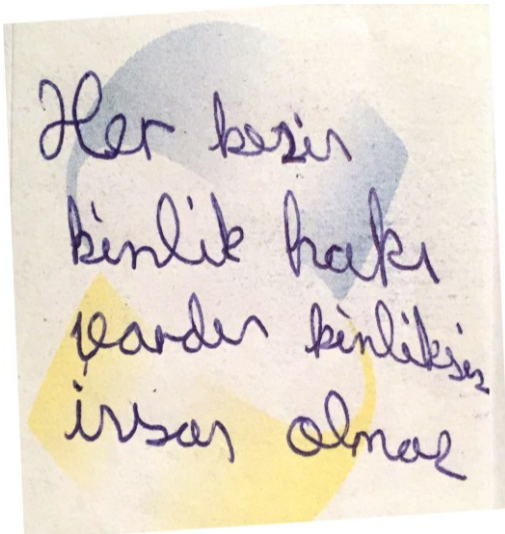 Her kesin
kinlik hakı
vardır kinliksiz
insan olmaz